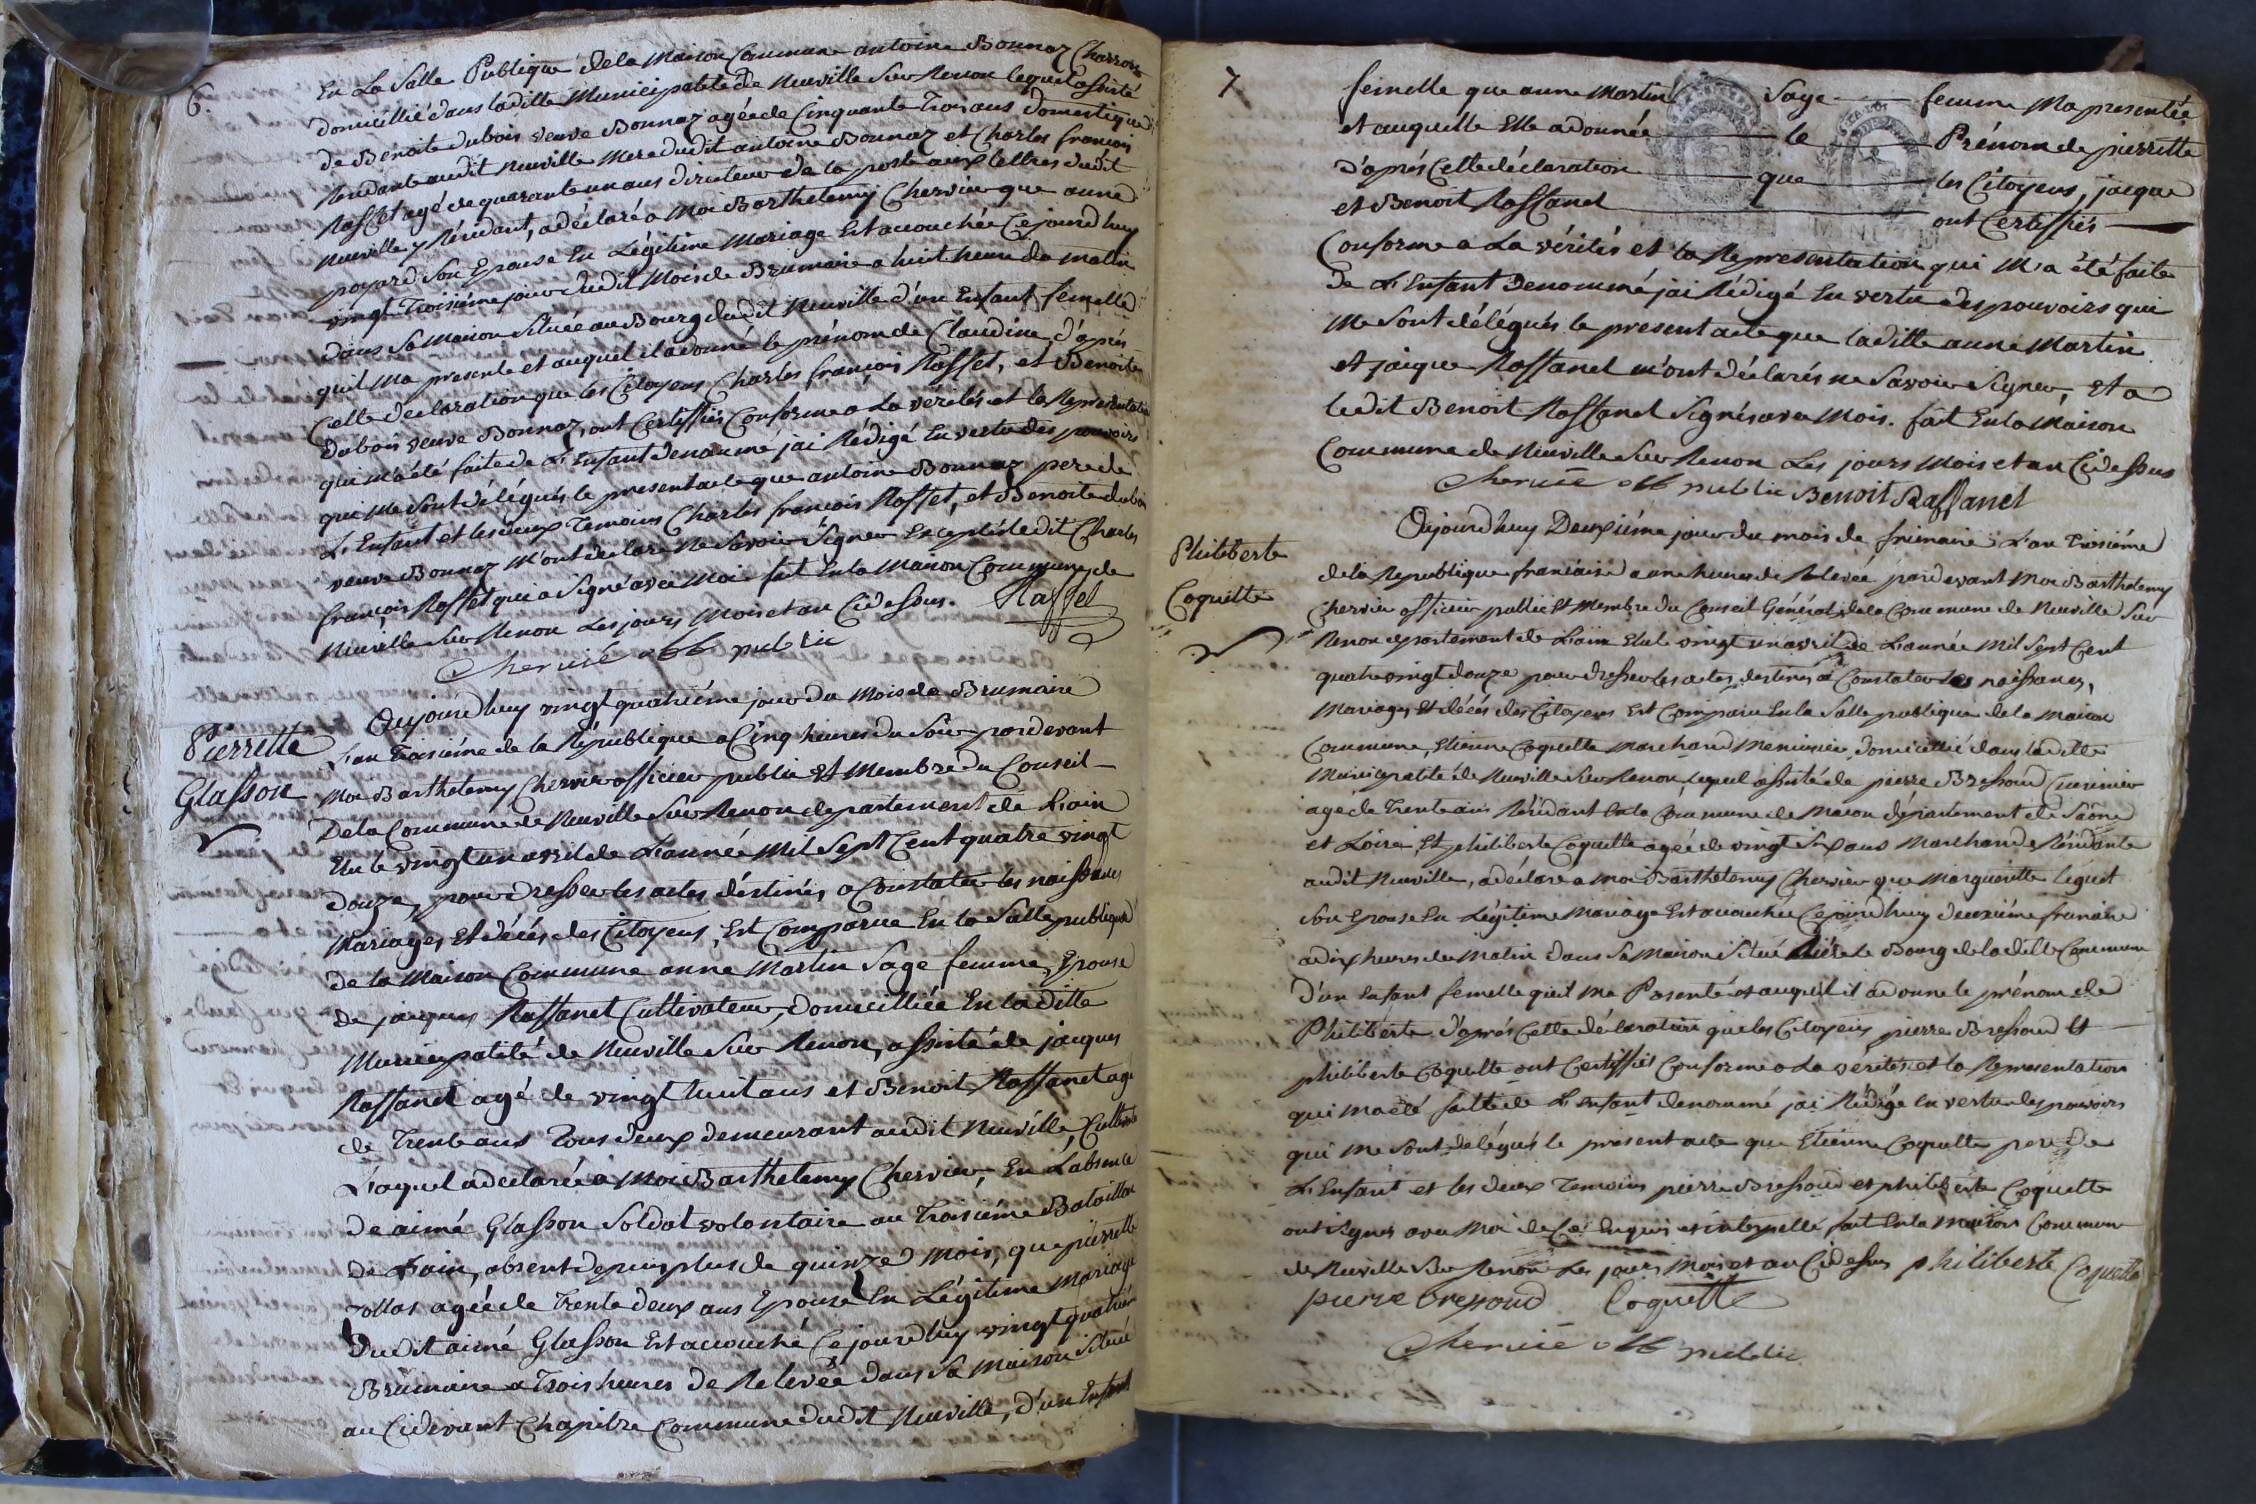 6.
En La Salle Publique de la Maison Commune antoine Bonnaz Charron
domicillié dans laditte Municipalité de Neuville Sur Renon lequel assisté
de Benoite Dubois veuve Bonnaz agée de Cinquante Trois ans domestique
Residante audit Neuville Mere dudit antoine Bonnaz et Charles françois
Rasset agé de quarante un ans directeur de la poste aux lettres dudit
Neuville y Résidant, a déclaré a Moi Barthelemy Chervier que anne
poyard Son Epouse En Légitime Mariage Est accouchée Cejourdhuy
vingt Troisiéme jour dudit Mois de Brumaire a huit heure du matin
dans Sa Maison Située au Bourg dudit Neuville d'un Enfant femelle
quil Ma presenté et auquel il a donné le prénom de Claudine, d'aprés
Cette declaration que les Citoyens Charles françois Rasset, et Benoite
Dubois veuve Bonnaz, ont Certiffiés Conforme a La vérités et la Representation
qui m'a été faite de L'Enfant denommé jai Rédigé En vertu des pouvoirs
qui Me Sont délégués le present acte que antoine Bonnaz pere de
L'Enfant et les deux Temoins Charles francois Rasset, et Benoite dubois
veuve Bonnaz M'ont declaré Ne Savoir Signer Excepté ledit Charles
françois Rasset qui a Signé avec Moi fait En la Maison Commune de
Neuville Sur Renon Les jours Mois et an Cidessus. Rasset
Chervié off public
Pierrette
Glasson
Oujourdhuy vingt quatriéme jour du Mois de Brumaire
L'an Troisiéme de la République a Cinq heures du Soir pardevant
Moi Barthelemy Chervier officier public Et Membre du Conseil
De la Commune de Neuville Sur Renon departement de L'ain
Elu le vingt un avril de L'année Mil Sept Cent quatre vingt
douze, pour dresser les actes déstinés a Constater les naissances
Mariages Et décés des Citoyens, Est Comparue En la Salle publique
de la Maison Commune anne Martin Sage femme, Epouse
de jacques Raffanel Cultivateur, domicilliée En laditte
Municipalité de Neuville Sur Renon, assisté de jacques
Raffanel agé de vingt huit ans et Benoit Raffanel agé
de Trente ans Tous deux demeurant audit Neuville Cultivateurs
Laquel a declarée a Moi Barthelemy Chervier, En L'absence
de aimé Glasson Soldat volontaire au Troisiéme Bataillon
de L'ain, absent depuis plus de quinze Mois, que pierrette
Tollas agée de Trente deux ans Epouse En Légitime Mariage
Dudit aimé Glasson Est accouché Cejourdhuy vingt quatriéme
Brumaire a Trois heures de Relevée dans Sa Maison Située
au Cidevant Chapitre Commune dudit Neuville, d'un Enfant
7
femelle que anne Martin Sage femme Ma presentée
et auquelle Elle a donnée le Prénom de pierrette
D'aprés Cette déclaration que les Citoyens, jacque
et Benoit Raffanel ont Certiffiés
Conforme a La vérités et la Representation qui M'a été faite
De L'Enfant Denommé jai Rédigé En vertu des pouvoirs qui
Me Sont délégués le present acte que laditte anne Martin
et jacque Raffanel m'ont déclarés ne Savoir Signer, Et a
ledit Benoit Raffanel Signés avec Mois. fait En la Maison
Commune de Neuville Sur Renon Les jours Mois et an Cidessus
Chervié off public Benoit Raffanel
Philiberte
Coquette
Oujourdhuy Deuxiéme jour du mois de frimaire L'an Troisiéme
de la Republique francaise a une heures de Relevée pardevant Moi Barthelemy
Chervier officier public Et Membre du Conseil Général de la Commune de Neuville Sur
Renon departement de L'ain Elu le vingt un avril de L'année Mil Sept Cent
quatre vingt douze pour dresser les actes destinés a Constater les naissances,
Mariages, Et décés des Citoyens Est Comparu En la Salle publique de la Maison
Commune, Etienne Coquette Marchand Menuisier, domicillié dans laditte
Municipalité de Neuville Sur Renon, lequel assisté de pierre Bressoud Cuisinier
agé de Trente ans Résidant En la Commune de Macon département de Saône
et Loire, Et philiberte Coquette agée de vingt Six ans Marchande Résidante
audit Neuville, a declaré a Moi Barthelemy Chervier que Marguerite Liguet
Son Epouse En Légitime Mariage Est accouchée Cejourdhuy deuxiéme frimaire
a dix heures du Matin dans Sa Maison Situé Riére le Bourg de la ditte Commune
d'un Enfant femelle quil Ma Pasenté et auquel il a donné le prénom de
Philiberte d'aprés Cette déclaration que les Citoyens pierre Bressoud Et
philiberte Coquette ont Certiffiés Conforme a La vérités et la Representation
qui m'a été faitte de L'Enfant denommé jai Rédigé En vertu des pouvoirs
qui me Sont delégués le present acte que Etienne Coquette pere de
L'Enfant et les deux Temoins pierre Bressoud et philiberte Coquette
ont Signés avec Moi de Ce Enquis et interpellé fait En la Maison Commune
de Neuville Sur Renon Les jours Mois et an Cidessus philiberte Coquette
pierre bressoud Coquette
Chervié off public